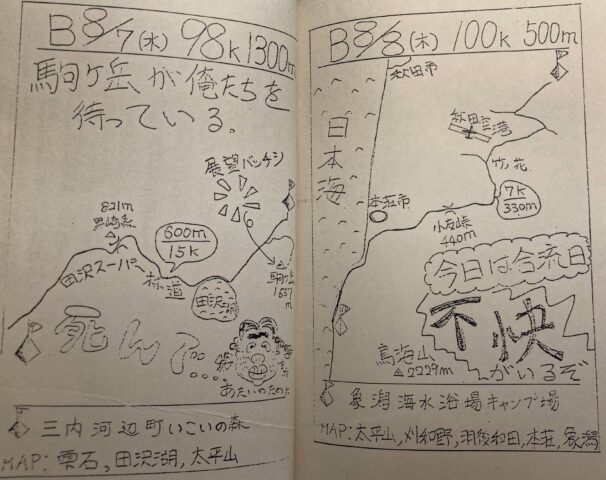 B 8/7(水) 98k 1300m
駒ケ岳が俺たちを
待っている。
展望バッチシ
821m
600m
15k
田沢スーパー林道
田沢湖
駒ケ岳
1637m
死んで....
あたいのためた
三内河辺町いこいの森
MAP: 雫石, 田沢湖, 太平山
B 8/8(木) 100k 500m
秋田市
日本海
秋田空港
竹ノ花
7k
330m
本荘市
440m
今日は合流日
不快
がいるぞ
鳥海山
2229m
象潟海水浴場キャンプ場
MAP: 太平山, 刈和野, 羽後和田, 本荘, 象潟